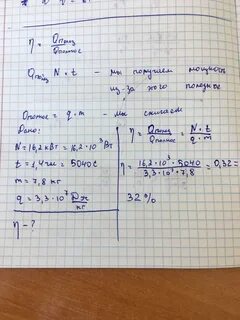 η = Qполез / Qполное
Qполез N × t - мы получаем мощность
из-за кого полезное
Qполное = q · m - мы сжигаем
Дано:
N = 16,2 кВт = 16,2 · 10³ Вт
t = 1,4 ч = 5040 с
m = 7,8 кг
q = 3,3 · 10⁷ Дж/кг
η - ?
η = Qполез / Qполное = N · t / q · m
η = 16,2 · 10³ · 5040 / 3,3 · 10⁷ · 7,8 = 0,32 =
32 %